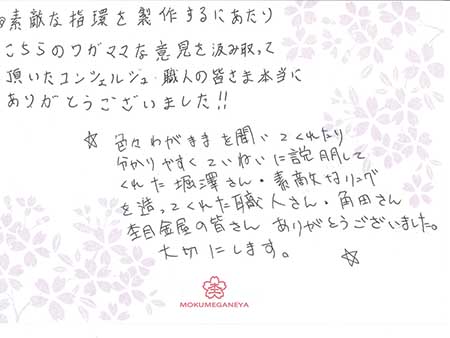 素敵な指環を製作するにあたり
こちらのワガママな意見を汲み取って
頂いたコンシェルジュ・職人の皆さま本当に
ありがとうございました!!
☆ 色々わがままを聞いてくれたり
分かりやすくていねいに説明して
くれた堀澤さん・素敵なリング
を造ってくれた職人さん・角田さん
杢目金屋の皆さん ありがとうございました。
大切にします。 ☆
MOKUMEGANEYA